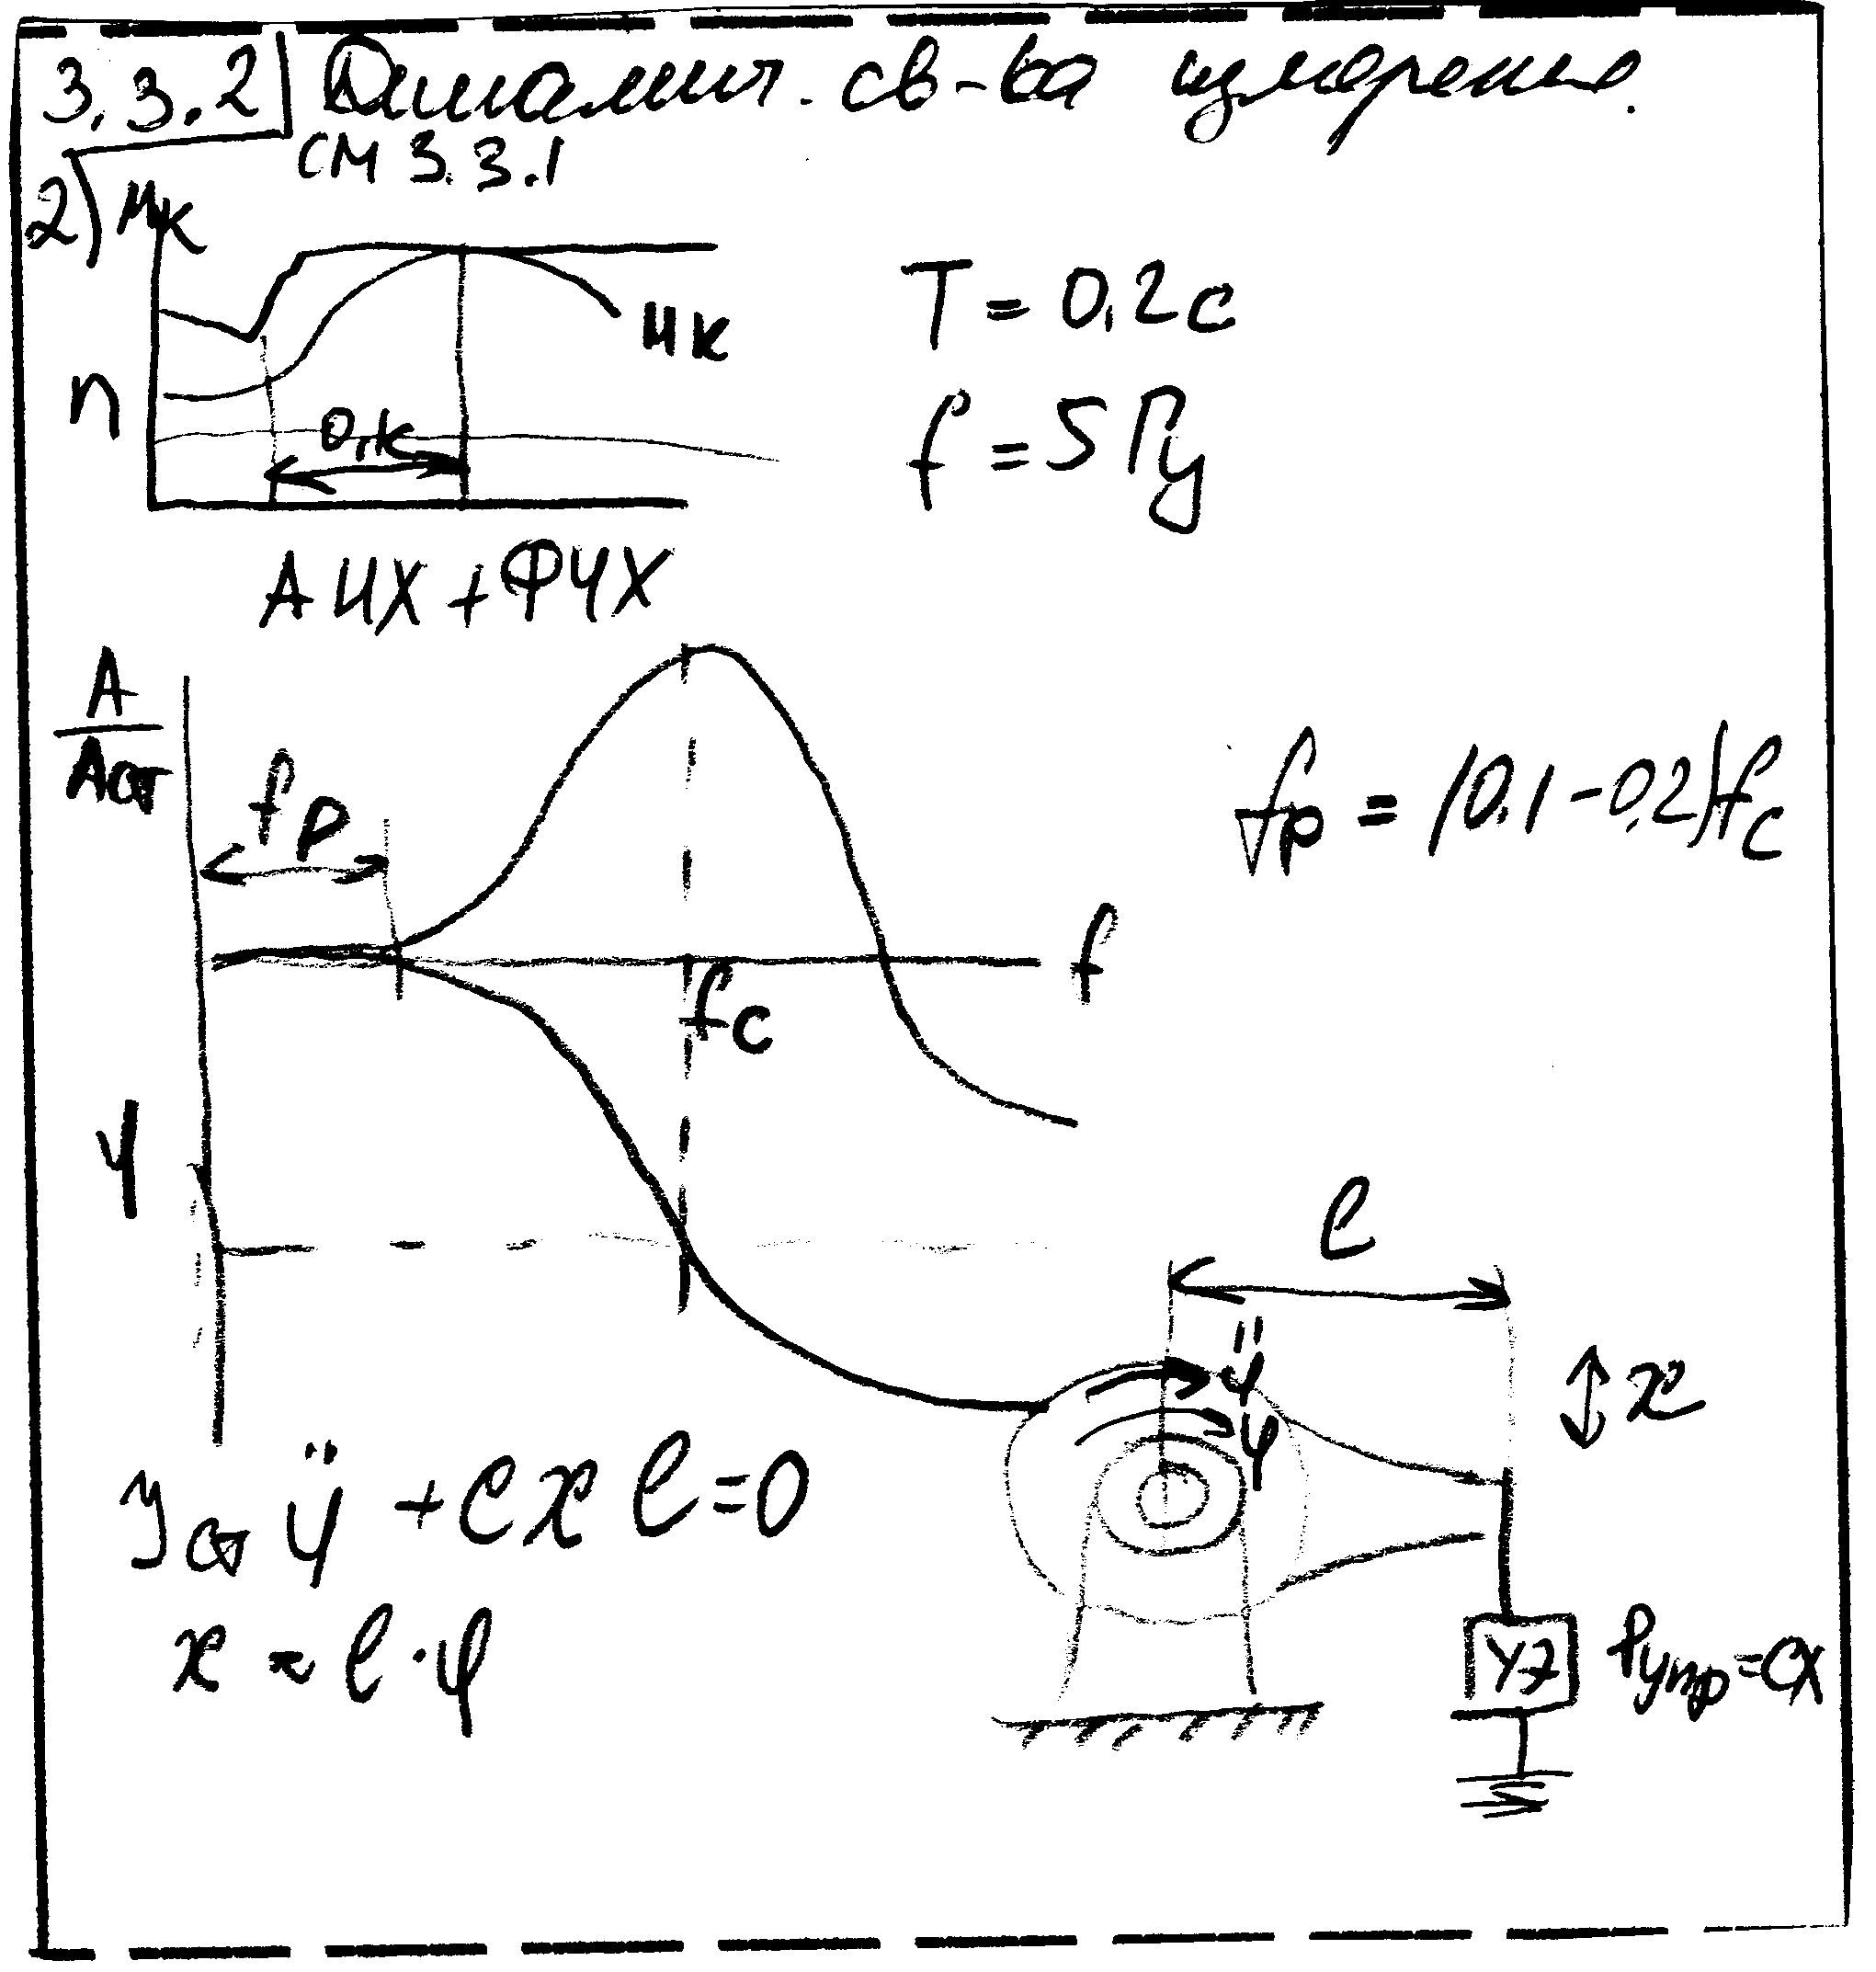 3.3.2 Динамич. св-ва измерения.
см 3.3.1
2) Mк
Mк
n
0,1с
T = 0,2 с
f = 5 Гц
АЧХ + ФЧХ
A
Aст
fр
fр = (0,1 - 0,2) fс
f
fс
φ
l
φ̈
φ
x
Jст φ̈ + c x l = 0
x ≈ l · φ
УЭ
Pупр = cx